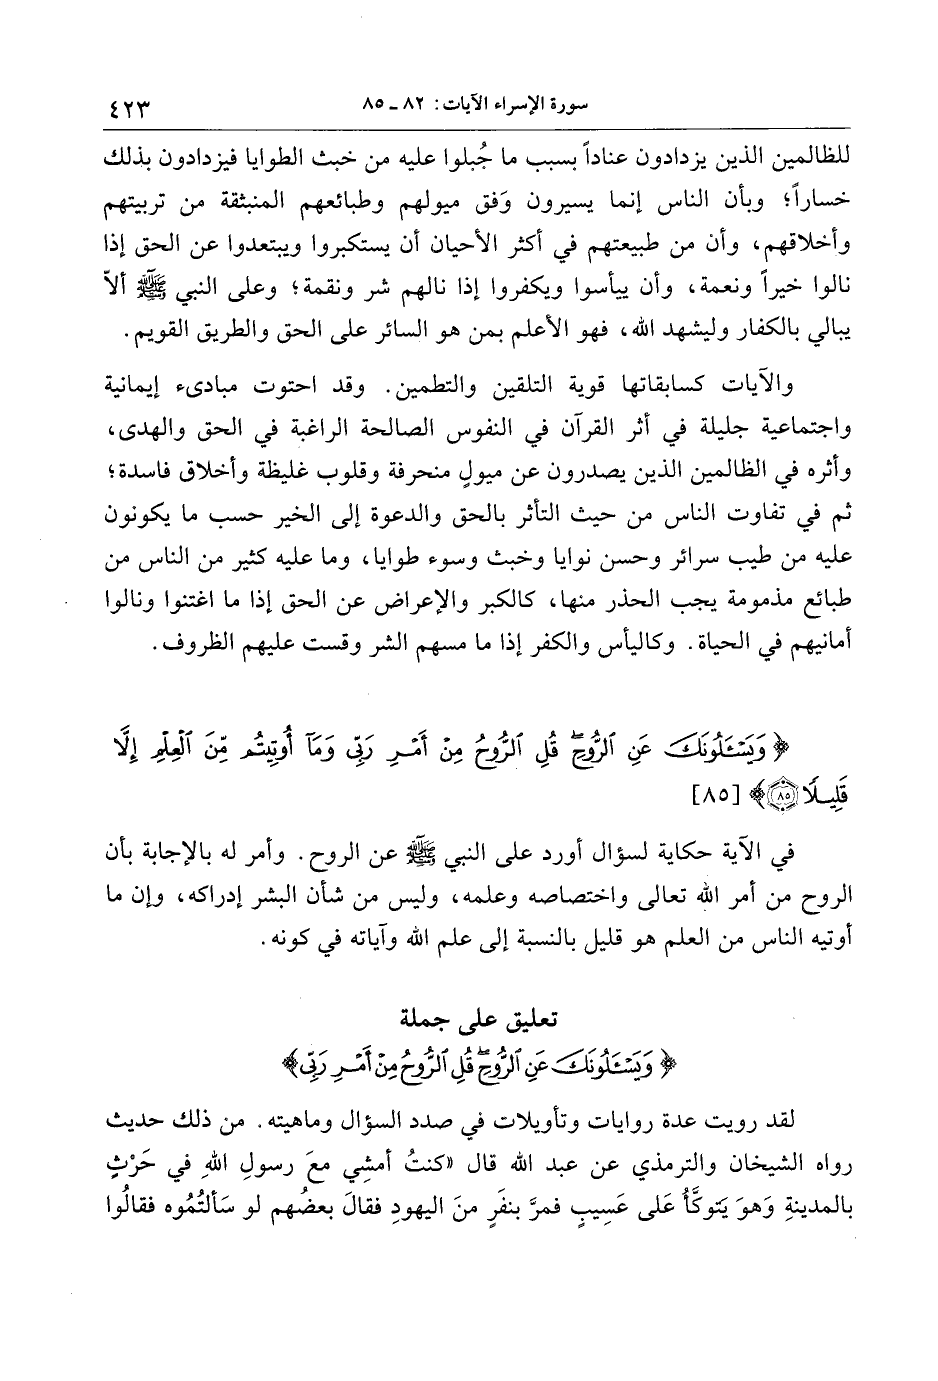 سورة الإسراء الآيات: ٨٢ ـ ٨٥ ٤٢٣
للظالمين الذين يزدادون عناداً بسبب ما جُبلوا عليه من خبث الطوايا فيزدادون بذلك
خساراً؛ وبأن الناس إنما يسيرون وَفق ميولهم وطبائعهم المنبثقة من تربيتهم
وأخلاقهم، وأن من طبيعتهم في أكثر الأحيان أن يستكبروا ويبتعدوا عن الحق إذا
نالوا خيراً ونعمة، وأن ييأسوا ويكفروا إذا نالهم شر ونقمة؛ وعلى النبي ﷺ ألاّ
يبالي بالكفار وليشهد الله، فهو الأعلم بمن هو السائر على الحق والطريق القويم.
والآيات كسابقاتها قوية التلقين والتطمين. وقد احتوت مبادىء إيمانية
واجتماعية جليلة في أثر القرآن في النفوس الصالحة الراغبة في الحق والهدى،
وأثره في الظالمين الذين يصدرون عن ميولٍ منحرفة وقلوب غليظة وأخلاق فاسدة؛
ثم في تفاوت الناس من حيث التأثر بالحق والدعوة إلى الخير حسب ما يكونون
عليه من طيب سرائر وحسن نوايا وخبث وسوء طوايا، وما عليه كثير من الناس من
طبائع مذمومة يجب الحذر منها، كالكبر والإعراض عن الحق إذا ما اغتنوا ونالوا
أمانيهم في الحياة. وكاليأس والكفر إذا ما مسهم الشر وقست عليهم الظروف.
﴿ وَيَسْـَٔلُونَكَ عَنِ ٱلرُّوحِ ۖ قُلِ ٱلرُّوحُ مِنْ أَمْرِ رَبِّى وَمَآ أُوتِيتُم مِّنَ ٱلْعِلْمِ إِلَّا
قَلِيلًا ٨٥ ﴾ [٨٥]
في الآية حكاية لسؤال أورد على النبي ﷺ عن الروح. وأمر له بالإجابة بأن
الروح من أمر الله تعالى واختصاصه وعلمه، وليس من شأن البشر إدراكه، وإن ما
أوتيه الناس من العلم هو قليل بالنسبة إلى علم الله وآياته في كونه.
تعليق على جملة
﴿ وَيَسْـَٔلُونَكَ عَنِ ٱلرُّوحِ ۖ قُلِ ٱلرُّوحُ مِنْ أَمْرِ رَبِّى ﴾
لقد رويت عدة روايات وتأويلات في صدد السؤال وماهيته. من ذلك حديث
رواه الشيخان والترمذي عن عبد الله قال «كنتُ أمشي معَ رسولِ اللهِ في حَرْثٍ
بالمدينةِ وَهوَ يَتوكَّأُ عَلى عَسِيبٍ فمرَّ بنفَرٍ منَ اليهودِ فقالَ بعضُهم لو سَألتُمُوه فقالُوا